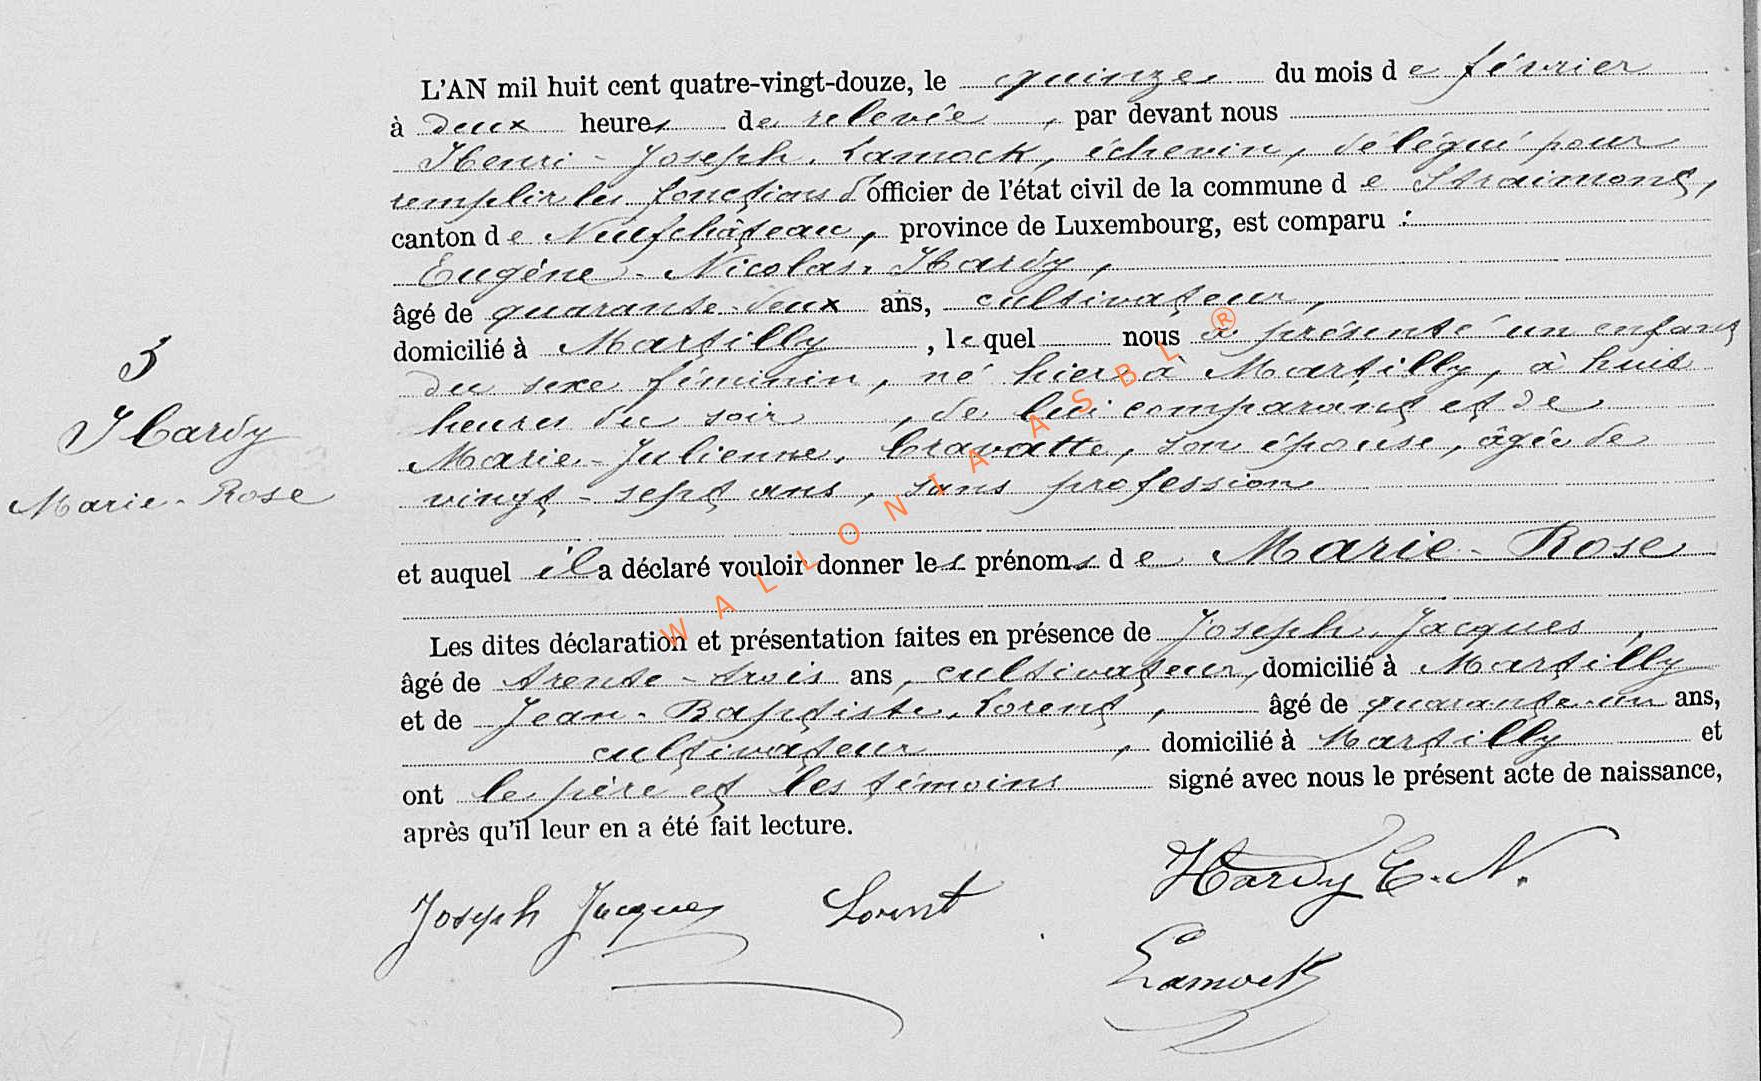 L'AN mil huit cent quatre-vingt-douze, le quinze du mois de février
à deux heures de relevée, par devant nous
Henri-Joseph Lamock, échevin, délégué pour
remplir les fonctions d'officier de l'état civil de la commune de Straimont,
canton de Neufchâteau, province de Luxembourg, est comparu :
Eugène-Nicolas Hardy,
âgé de quarante-deux ans, cultivateur,
domicilié à Martilly, lequel nous a présenté un enfant
du sexe féminin, né hier à Martilly, à huit
heures du soir, de lui comparant et de
Marie-Julienne Cravatte, son épouse, âgée de
vingt-sept ans, sans profession
et auquel il a déclaré vouloir donner les prénoms de Marie-Rose
Les dites déclaration et présentation faites en présence de Joseph Jacques,
âgé de trente-trois ans, cultivateur, domicilié à Martilly
et de Jean-Baptiste Lorent, âgé de quarante-un ans,
cultivateur, domicilié à Martilly et
ont le père et les témoins signé avec nous le présent acte de naissance,
après qu'il leur en a été fait lecture.
Hardy E.N.
Joseph Jacques Lorent
Lamock
3
Hardy
Marie-Rose
WALLONIA ASBL ®